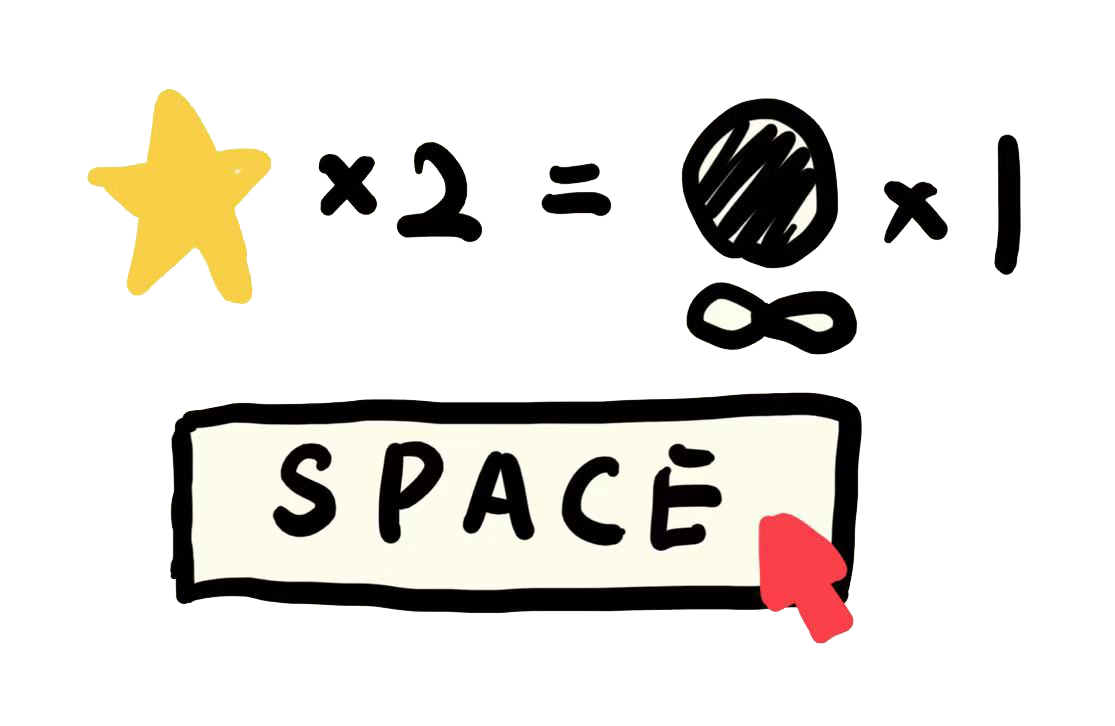 ×2 = ×1
∞
SPACE